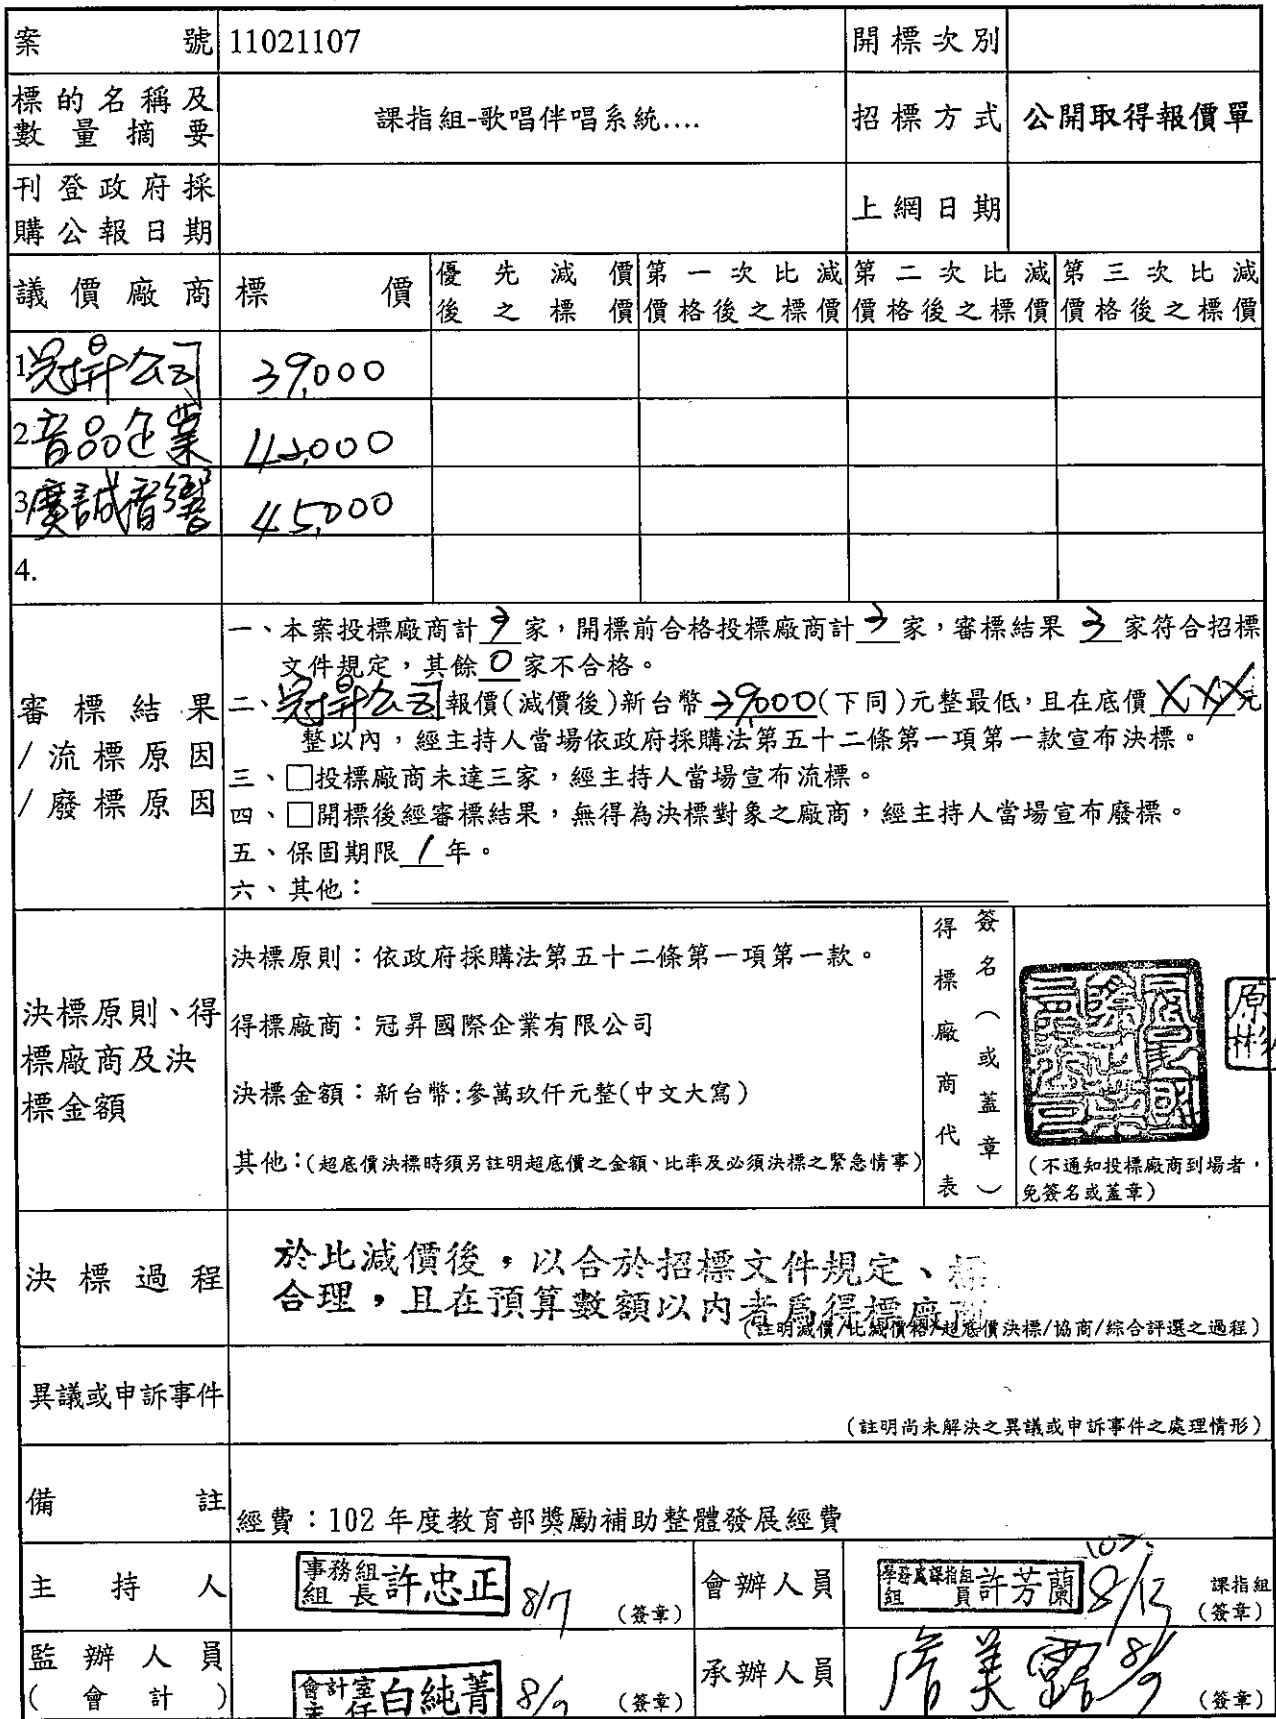 案號 11021107 開標次別
標的名稱及
數量摘要 課指組-歌唱伴唱系統.... 招標方式 公開取得報價單
刊登政府採
購公報日期 上網日期
議價廠商 標價 優先減價 第一次比減 第二次比減 第三次比減
後之標價 價格後之標價 價格後之標價 價格後之標價
1.冠昇公司 39,000
2.音品企業 42,000
3.廣誠音響 45,000
4.
審標結果
/流標原因
/廢標原因
一、本案投標廠商計 3 家，開標前合格投標廠商計 3 家，審標結果 3 家符合招標
文件規定，其餘 0 家不合格。
二、冠昇公司報價(減價後)新台幣 39,000(下同)元整最低，且在底價 XXX 元
整以內，經主持人當場依政府採購法第五十二條第一項第一款宣布決標。
三、□投標廠商未達三家，經主持人當場宣布流標。
四、□開標後經審標結果，無得為決標對象之廠商，經主持人當場宣布廢標。
五、保固期限 1 年。
六、其他：
決標原則、得
標廠商及決
標金額
決標原則：依政府採購法第五十二條第一項第一款。
得標廠商：冠昇國際企業有限公司
決標金額：新台幣:參萬玖仟元整(中文大寫)
其他：(超底價決標時須另註明超底價之金額、比率及必須決標之緊急情事)
得標廠商代表
簽名（或蓋章）
原
彬
(不通知投標廠商到場者，
免簽名或蓋章)
決標過程
於比減價後，以合於招標文件規定、標
合理，且在預算數額以內者為得標廠商
(註明減價/比減價格/超底價決標/協商/綜合評選之過程)
異議或申訴事件
(註明尚未解決之異議或申訴事件之處理情形)
備註 經費：102 年度教育部獎勵補助整體發展經費
主持人 事務組組長 許忠正 8/7 (簽章)
會辦人員 學務處課指組組員 許芳蘭 102. 8/13 課指組
(簽章)
監辦人員
(會計) 會計室主任 白純菁 8/9 (簽章)
承辦人員 詹美露 8/9 (簽章)